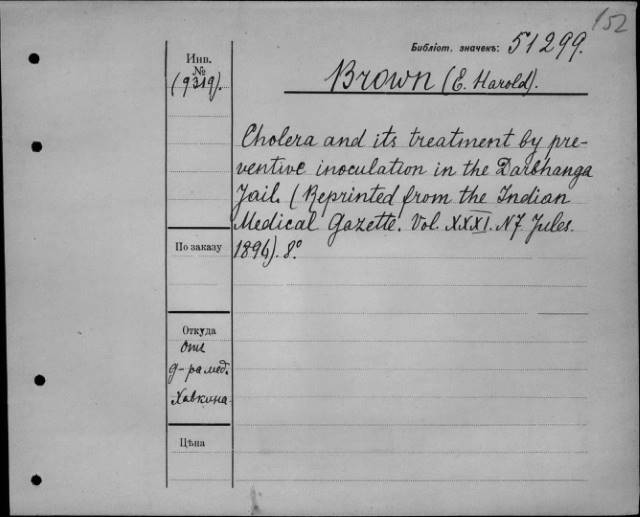 152
Библіот. значекъ: 51299.
Инв.
№
(9319).
Brown (E. Harold).
Cholera and its treatment by pre-
ventive inoculation in the Darbhanga
Jail. (Reprinted from the Indian
Medical Gazette. Vol. XXXI. N7 Jules.
1896). 8.°
По заказу
Откуда
От
д-ра мед.
Хавкина
Цѣна